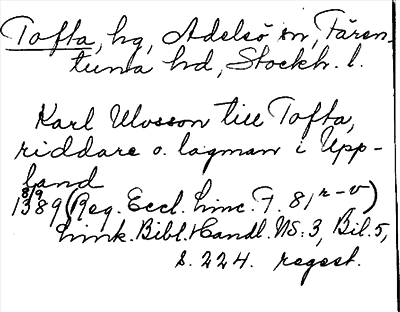 Tofta, hg, Adelsö sn, Fären-
tuna hd, Stockh. l.
Karl Ulvsson till Tofta,
riddare o. lagman i Upp-
land
8/9
1389 (Reg. Eccl. Linc. F. 81, r-v)
Link. Bibl. Handl. NS: 3, Bil. 5,
s. 224. regest.